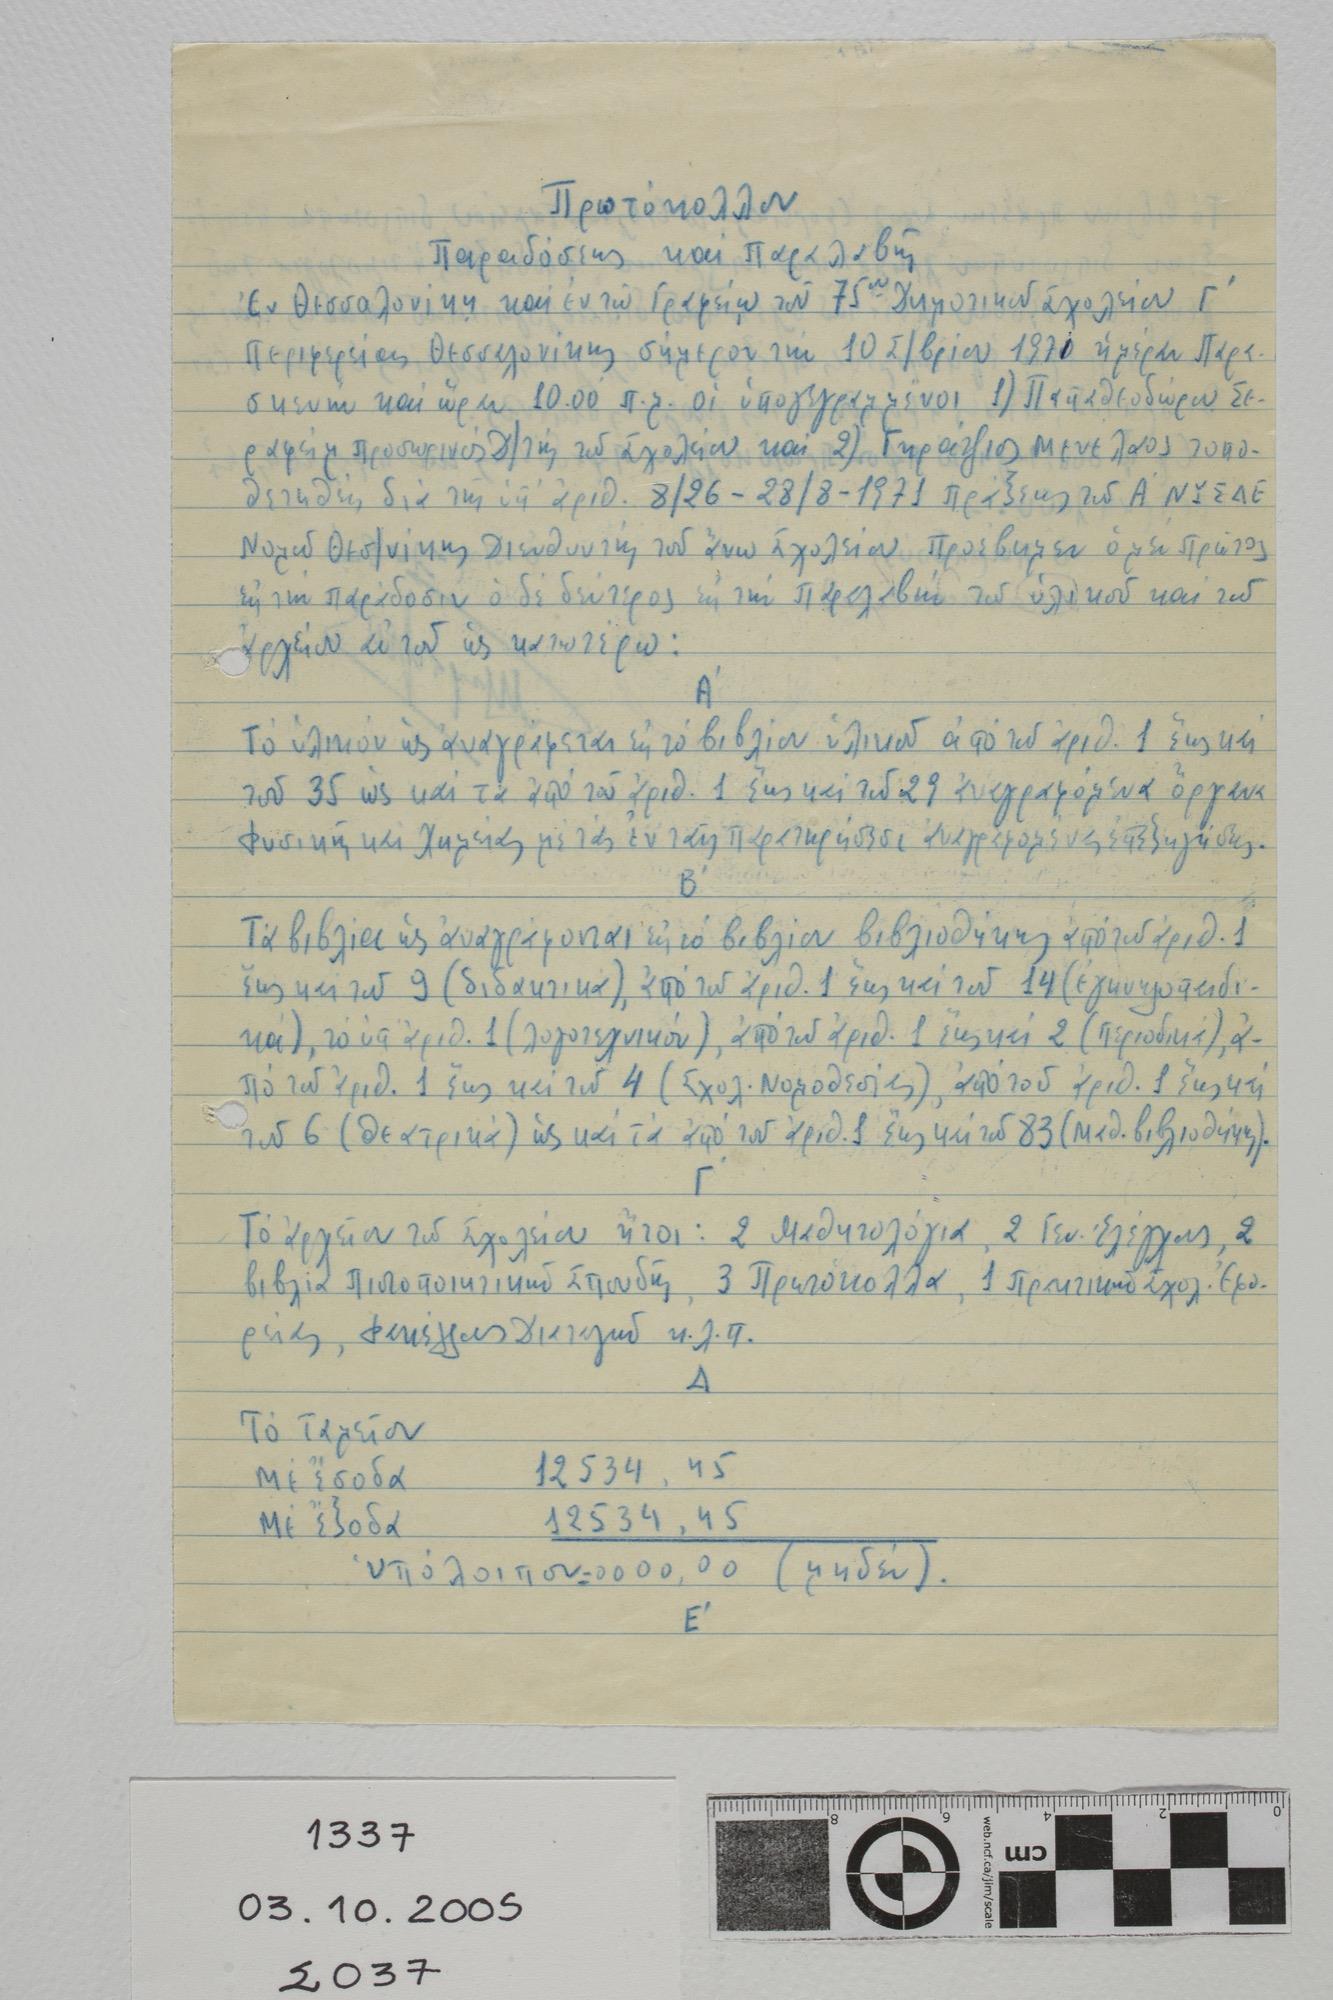 Πρωτόκολλον
Παραδόσεως καί Παραλαβῆς
Ἐν Θεσσαλονίκῃ καί ἐν τῷ Γραφείῳ τοῦ 75ου Δημοτικοῦ Σχολείου Γ΄
Περιφερείας Θεσσαλονίκης σήμερον τήν 10 Σ/βρίου 1971 ἡμέραν Παρα-
σκευήν καί ὥραν 10.00 π.μ. οἱ ὑπογεγραμμένοι 1) Παπαθεοδώρου Σε-
ραφείμ προσωρινός Δ/τής τοῦ Σχολείου καί 2) Γκράτζιος Μενέλαος τοπο-
θετηθείς διά τῆς ὑπ' ἀριθ. 8/26-28/8-1971 πράξεως τοῦ Α΄ ΝΥΣΔΕ
Νομοῦ Θεσ/νίκης Διευθυντής τοῦ ἄνω Σχολείου προέβημεν ὁ μέν πρῶτος
εἰς τήν παράδοσιν ὁ δέ δεύτερος εἰς τήν παραλαβήν τοῦ ὑλικοῦ καί τοῦ
ἀρχείου αὐτοῦ ὡς κατωτέρω:
Α΄
Τό ὑλικόν ὡς ἀναγράφεται εἰς τό βιβλίον ὑλικοῦ ἀπό τοῦ ἀριθ. 1 ἕως καί
τοῦ 35 ὡς καί τά ἀπό τοῦ ἀριθ. 1 ἕως καί τοῦ 29 ἀναγραφόμενα ὄργανα
Φυσικῆς καί Χημείας μέ τάς ἐν ταῖς παρατηρήσεσι ἀναγραφομένας ἐπεξηγήσεις.
Β΄
Τά βιβλία ὡς ἀναγράφονται εἰς τό βιβλίον βιβλιοθήκης ἀπό τοῦ ἀριθ. 1
ἕως καί τοῦ 9 (διδακτικά), ἀπό τοῦ ἀριθ. 1 ἕως καί τοῦ 14 (ἐγκυκλοπαιδι-
κά), τό ὑπ' ἀριθ. 1 (λογοτεχνικόν), ἀπό τοῦ ἀριθ. 1 ἕως καί 2 (περιοδικά), ἀ-
πό τοῦ ἀριθ. 1 ἕως καί τοῦ 4 (Σχολ. Νομοθεσίας), ἀπό τοῦ ἀριθ. 1 ἕως καί
τοῦ 6 (θεατρικά) ὡς καί τά ἀπό τοῦ ἀριθ. 1 ἕως καί τοῦ 83 (μαθ. βιβλιοθήκης).
Γ΄
Τό ἀρχεῖον τοῦ Σχολείου ἤτοι: 2 Μαθητολόγια, 2 Γεν. Ἐλέγχους, 2
βιβλία Πιστοποιητικοῦ Σπουδῆς, 3 Πρωτόκολλα, 1 Πρακτικοῦ Σχολ. Ἐφο-
ρείας, Φακέλλους Διαταγῶν κ.λ.π.
Δ
Τό Ταμεῖον
Μέ ἔσοδα 12534,45
Μέ ἔξοδα 12534,45
Ὑπόλοιπον=0000,00 (μηδέν).
Ε΄
1337
03.10.2005
Σ037
8 6 4 2 0
cm
web.ncf.ca/jim/scale